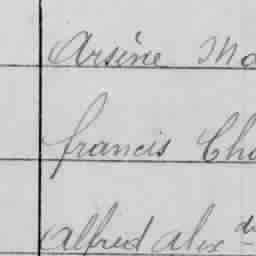 Arsène Mo
francis Cho
Alfred Alex de